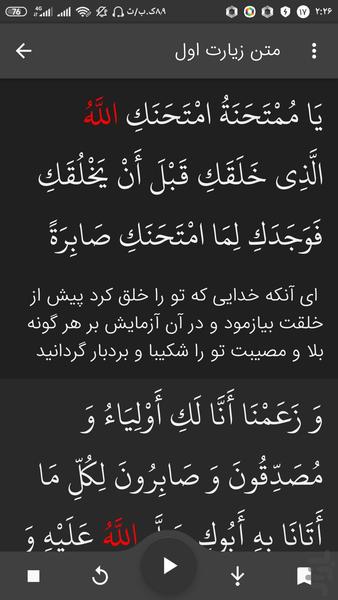 76 4G ۸۹ک.ب/ث ۱۷ ۲:۲۶
متن زیارت اول
یَا مُمْتَحَنَةُ امْتَحَنَكِ اللَّهُ
الَّذِی خَلَقَكِ قَبْلَ أَنْ یَخْلُقَكِ
فَوَجَدَكِ لِمَا امْتَحَنَكِ صَابِرَةً
ای آنکه خدایی که تو را خلق کرد پیش از
خلقت بیازمود و در آن آزمایش بر هر گونه
بلا و مصیبت تو را شکیبا و بردبار گردانید
وَ زَعَمْنَا أَنَّا لَكِ أَوْلِیَاءُ وَ
مُصَدِّقُونَ وَ صَابِرُونَ لِكُلِّ مَا
أَتَانَا بِهِ أَبُوكِ اللَّهُ عَلَیْهِ وَ